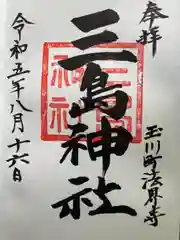 奉拝
玉川町法界寺
三島神社
令和五年八月十六日